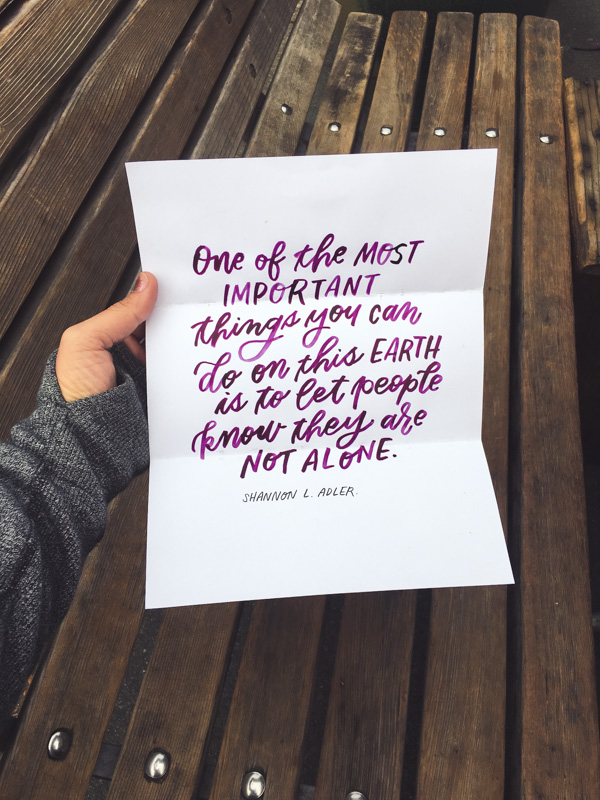 One of the MOST
IMPORTANT
things you can
do on this EARTH
is to let people
know they are
NOT ALONE.
SHANNON L. ADLER.